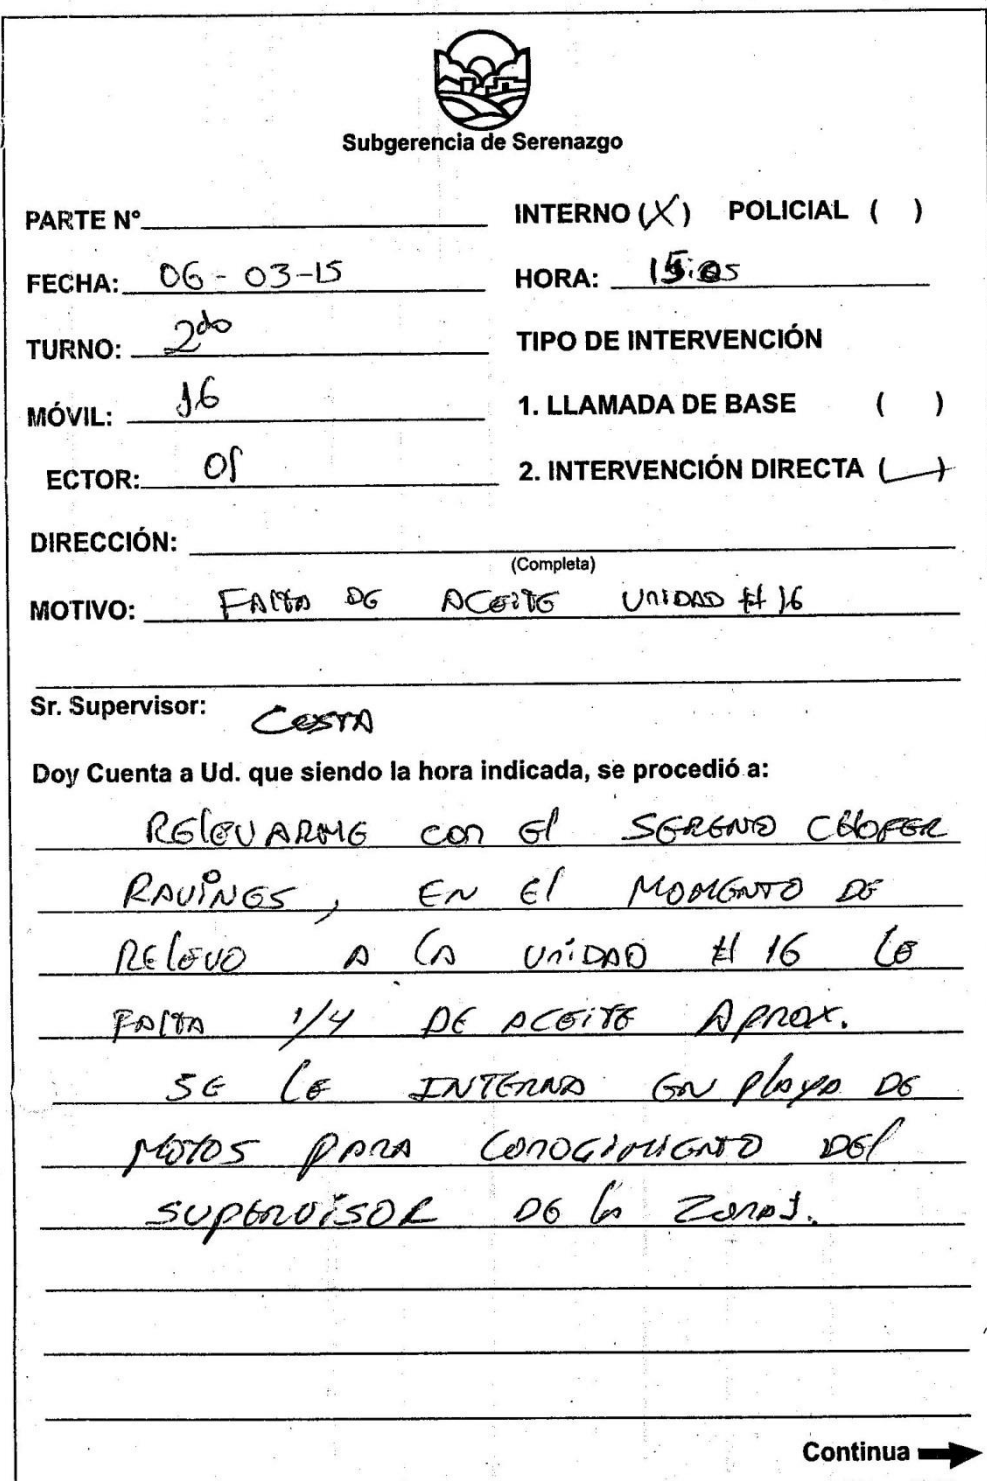 Subgerencia de Serenazgo
PARTE N° INTERNO (X) POLICIAL ( )
FECHA: 06-03-15 HORA: 15:05
TURNO: 2do TIPO DE INTERVENCIÓN
MÓVIL: 16 1. LLAMADA DE BASE ( )
ECTOR: 2. INTERVENCIÓN DIRECTA ( )
DIRECCIÓN:
(Completa)
MOTIVO: FALTA DE ACEITE UNIDAD # 16
Sr. Supervisor: COSTA
Doy Cuenta a Ud. que siendo la hora indicada, se procedió a:
RELEVARME con El SERENO CHOFER
RAVINES, EN El MOMENTO DE
RELEVO A LA UNIDAD # 16 LE
FALTA 1/4 DE ACEITE APROX.
SE LE INTERNA EN PLAYA DE
MOTOS PARA CONOCIMIENTO DEL
SUPERVISOR DE LA
Continua